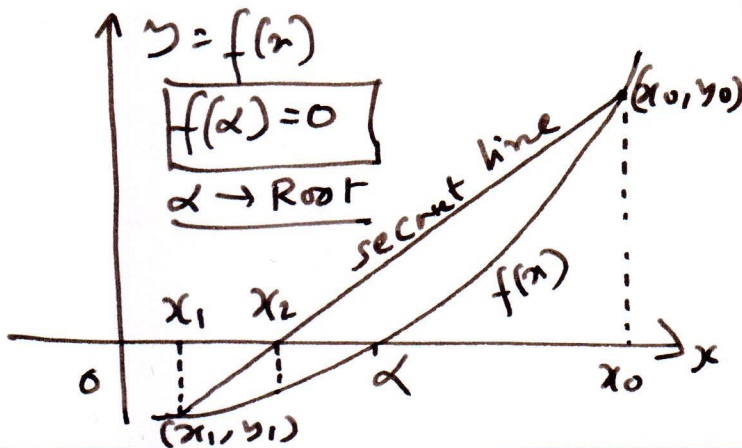 y = f(x)
f(α) = 0
α → Root
secant line
(x₀, y₀)
f(x)
x₁
x₂
0
α
x₀
x
(x₁, y₁)